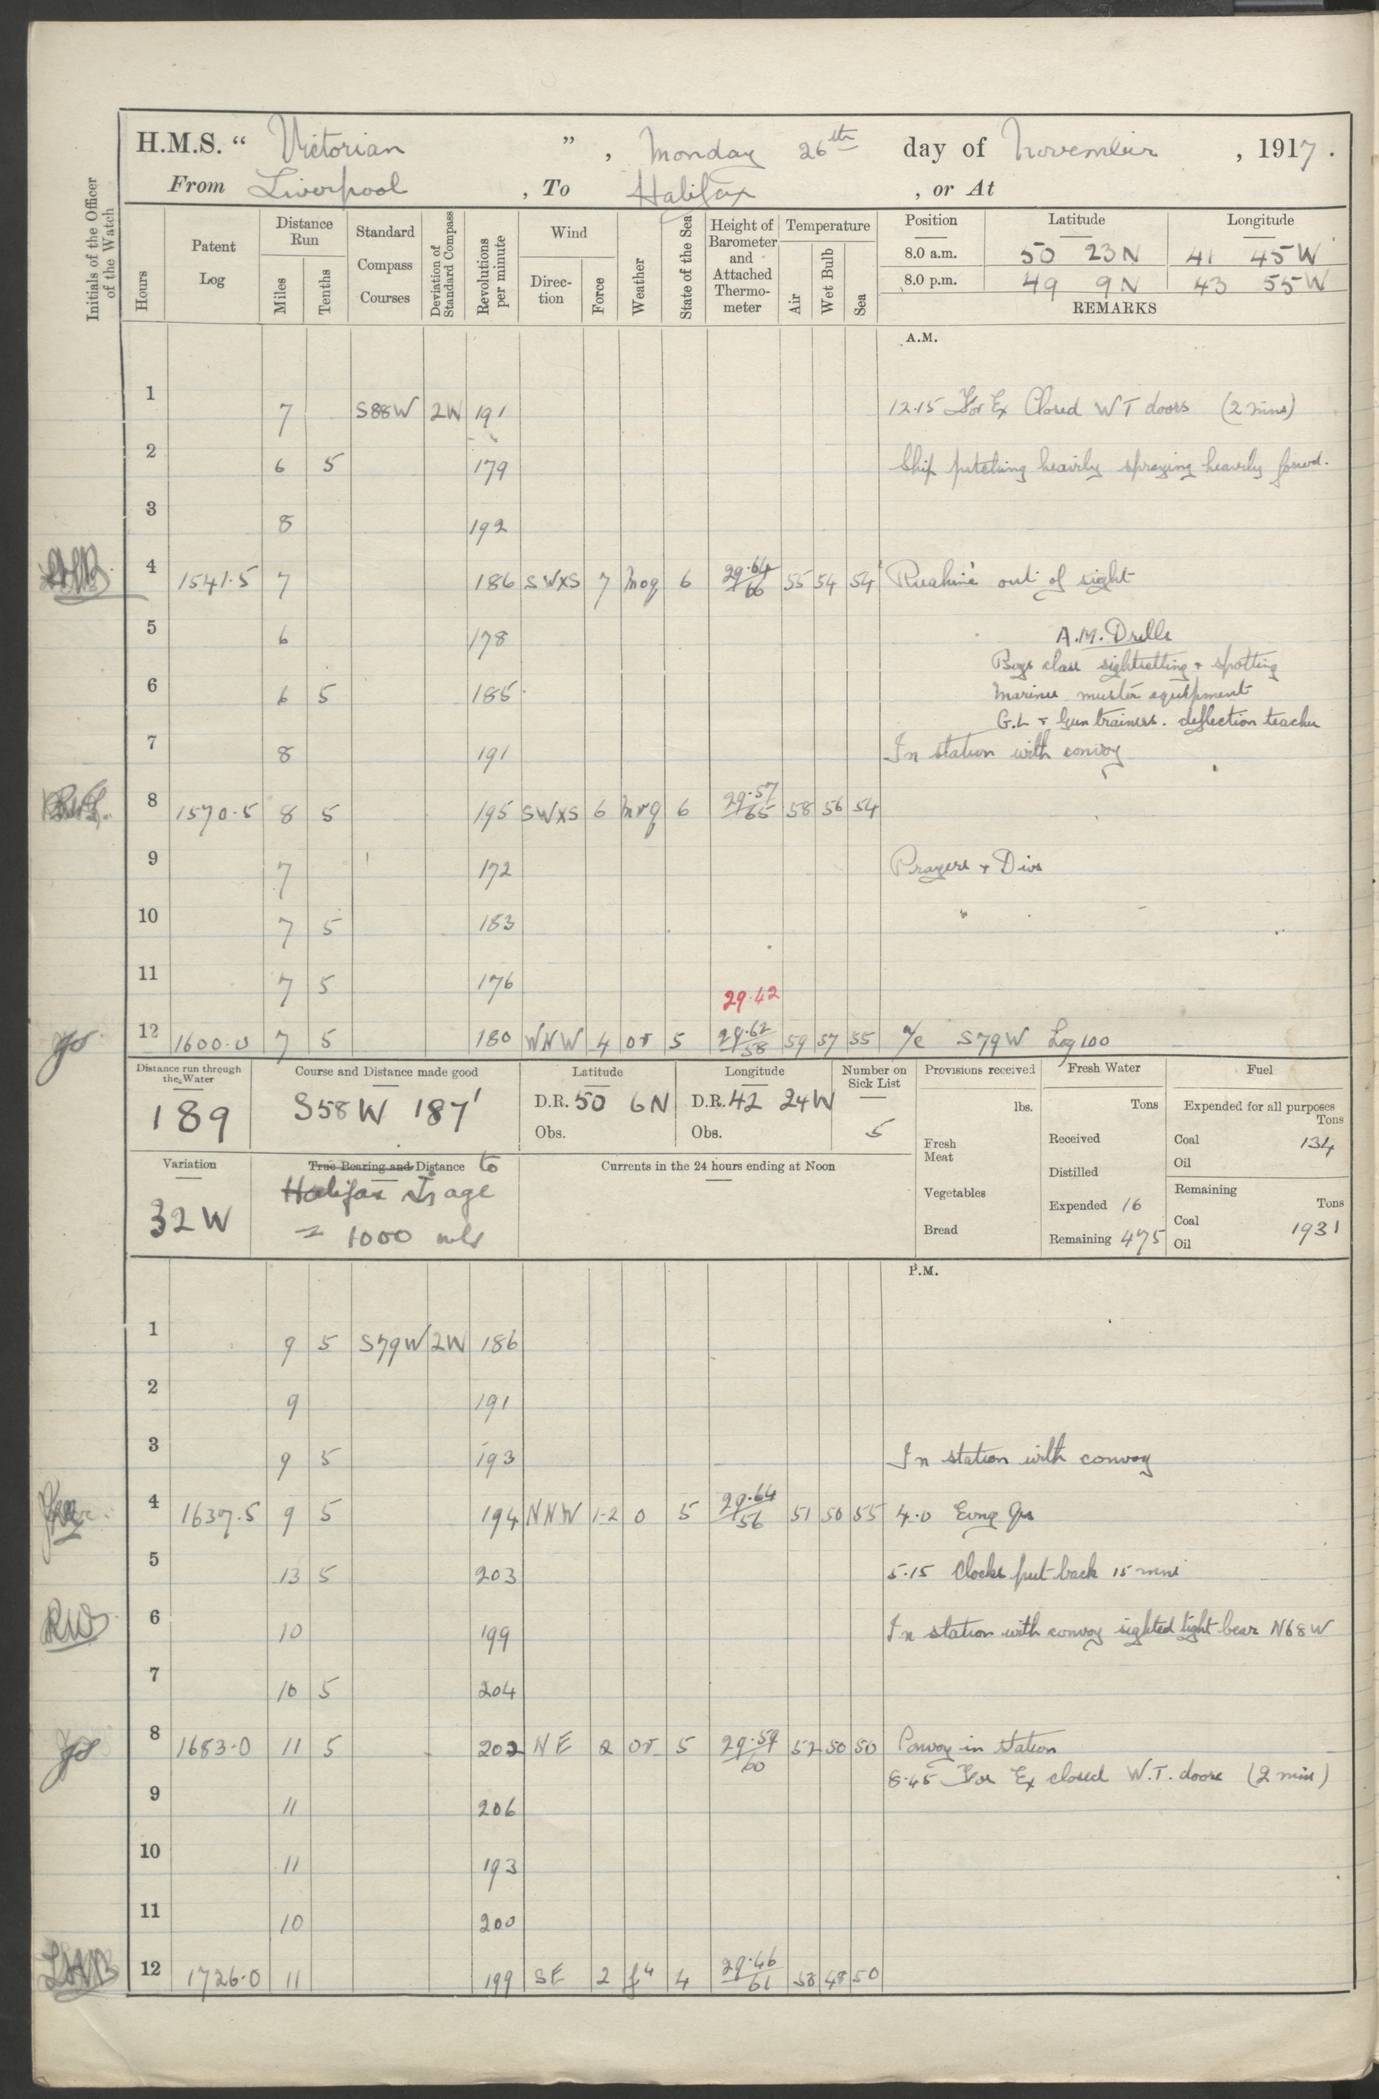 H.M.S. “ Victorian ” , Monday 26th day of November , 1917 .
From Liverpool , To Halifax , or At
Initials of the Officer of the Watch
Hours
Patent Log
Distance Run
Miles
Tenths
Standard Compass Courses
Deviation of Standard Compass
Revolutions per minute
Wind
Direction
Force
Weather
State of the Sea
Height of Barometer and Attached Thermometer
Temperature
Air
Wet Bulb
Sea
Position Latitude Longitude
8.0 a.m. 50 23 N 41 45 W
8.0 p.m. 49 9 N 43 55 W
REMARKS
A.M.
1 7 S88W 2W 191 12.15 For Ex Closed WT doors (2 mins)
2 6 5 179 Ship pitching heavily spraying heavily forwd.
3 8 192
4 1541.5 7 186 SWXS 7 moq 6 29.64/66 55 54 54 out of sight
5 6 178 A.M. Drills
Boys class sightsetting + spotting
6 6 5 185 Marines muster equipment
G.L + Gun trainers. deflection teacher
7 8 191 In station with convoy
8 1570.5 8 5 195 SWXS 6 mrq 6 29.57/65 58 56 54
9 7 172 Prayers + Divs
10 7 5 183
11 7 5 176
29.42
12 1600.0 7 5 180 WNW 4 or 5 29.62/58 59 57 55 a/c S79W Log 100
Distance run through the Water
189
Course and Distance made good
S58W 187'
Latitude
D.R. 50 6N
Obs.
Longitude
D.R. 42 24W
Obs.
Number on Sick List
5
Provisions received
lbs.
Fresh Meat
Vegetables
Bread
Fresh Water
Tons
Received
Distilled
Expended 16
Remaining 475
Fuel
Expended for all purposes
Tons
Coal 134
Oil
Remaining
Tons
Coal 1931
Oil
Variation
32W
True Bearing and Distance to
Halifax
= 1000 mls
Currents in the 24 hours ending at Noon
P.M.
1 9 5 S79W 2W 186
2 9 191
3 9 5 193 In station with convoy
4 1637.5 9 5 194 NNW 1-2 0 5 29.64/56 51 50 55 4.0 Evng Qrs
5 13 5 203 5.15 Clocks put back 15 mins
RWS 6 10 199 In station with convoy sighted light bear N68W
7 10 5 204
8 1683.0 11 5 202 NE 2 or 5 29.59/60 52 50 50 Convoy in station
8.45 For Ex closed W.T. doors (2 min)
9 11 206
10 11 193
11 10 200
12 1726.0 11 199 SE 2 4 29.46/61 53 48 50